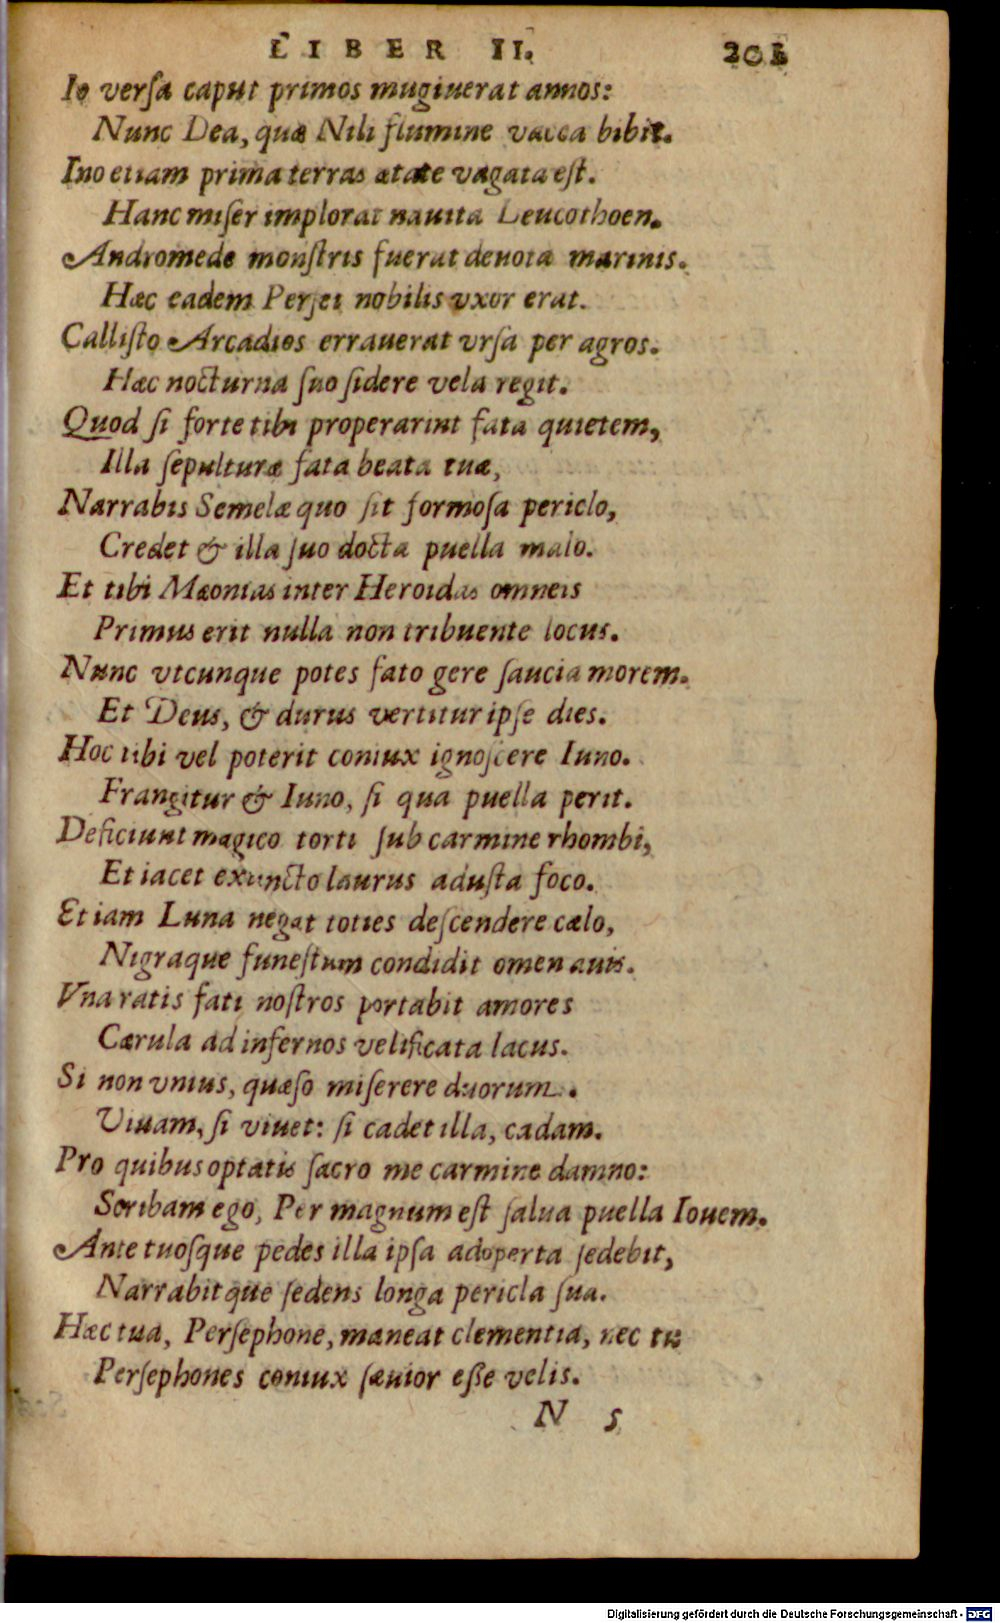 LIBER II. 201
Io versa caput primos mugiuerat annos:
Nunc Dea, quæ Nili flumine vacca bibit.
Ino etiam prima terras ætate vagata est.
Hanc miser implorat nauita Leucothoen.
Andromede monstris fuerat deuota marinis.
Hæc eadem Persei nobilis vxor erat.
Callisto Arcadios errauerat vrsa per agros.
Hæc nocturna suo sidere vela regit.
Quod si forte tibi properarint fata quietem,
Illa sepulturæ fata beata tuæ,
Narrabis Semelæ quo sit formosa periclo,
Credet & illa suo docta puella malo.
Et tibi Mæonias inter Heroidas omneis
Primus erit nulla non tribuente locus.
Nunc vtcunque potes fato gere saucia morem.
Et Deus, & durus vertitur ipse dies.
Hoc tibi vel poterit coniux ignoscere Iuno.
Frangitur & Iuno, si qua puella perit.
Deficiunt magico torti sub carmine rhombi,
Et iacet exuncto laurus adusta foco.
Etiam Luna negat toties descendere cælo,
Nigraque funestum condidit omen auis.
Vna ratis fati nostros portabit amores
Cærula ad infernos velificata lacus.
Si non vnius, quæso miserere duorum.
Viuam, si viuet: si cadet illa, cadam.
Pro quibus optatis sacro me carmine damno:
Scribam ego, Per magnum est salua puella Iouem.
Ante tuosque pedes illa ipsa adoperta sedebit,
Narrabitque sedens longa pericla sua.
Hæc tua, Persephone, maneat clementia, nec tu
Persephones coniux sæuior esse velis.
N 5
Digitalisierung gefördert durch die Deutsche Forschungsgemeinschaft - DFG